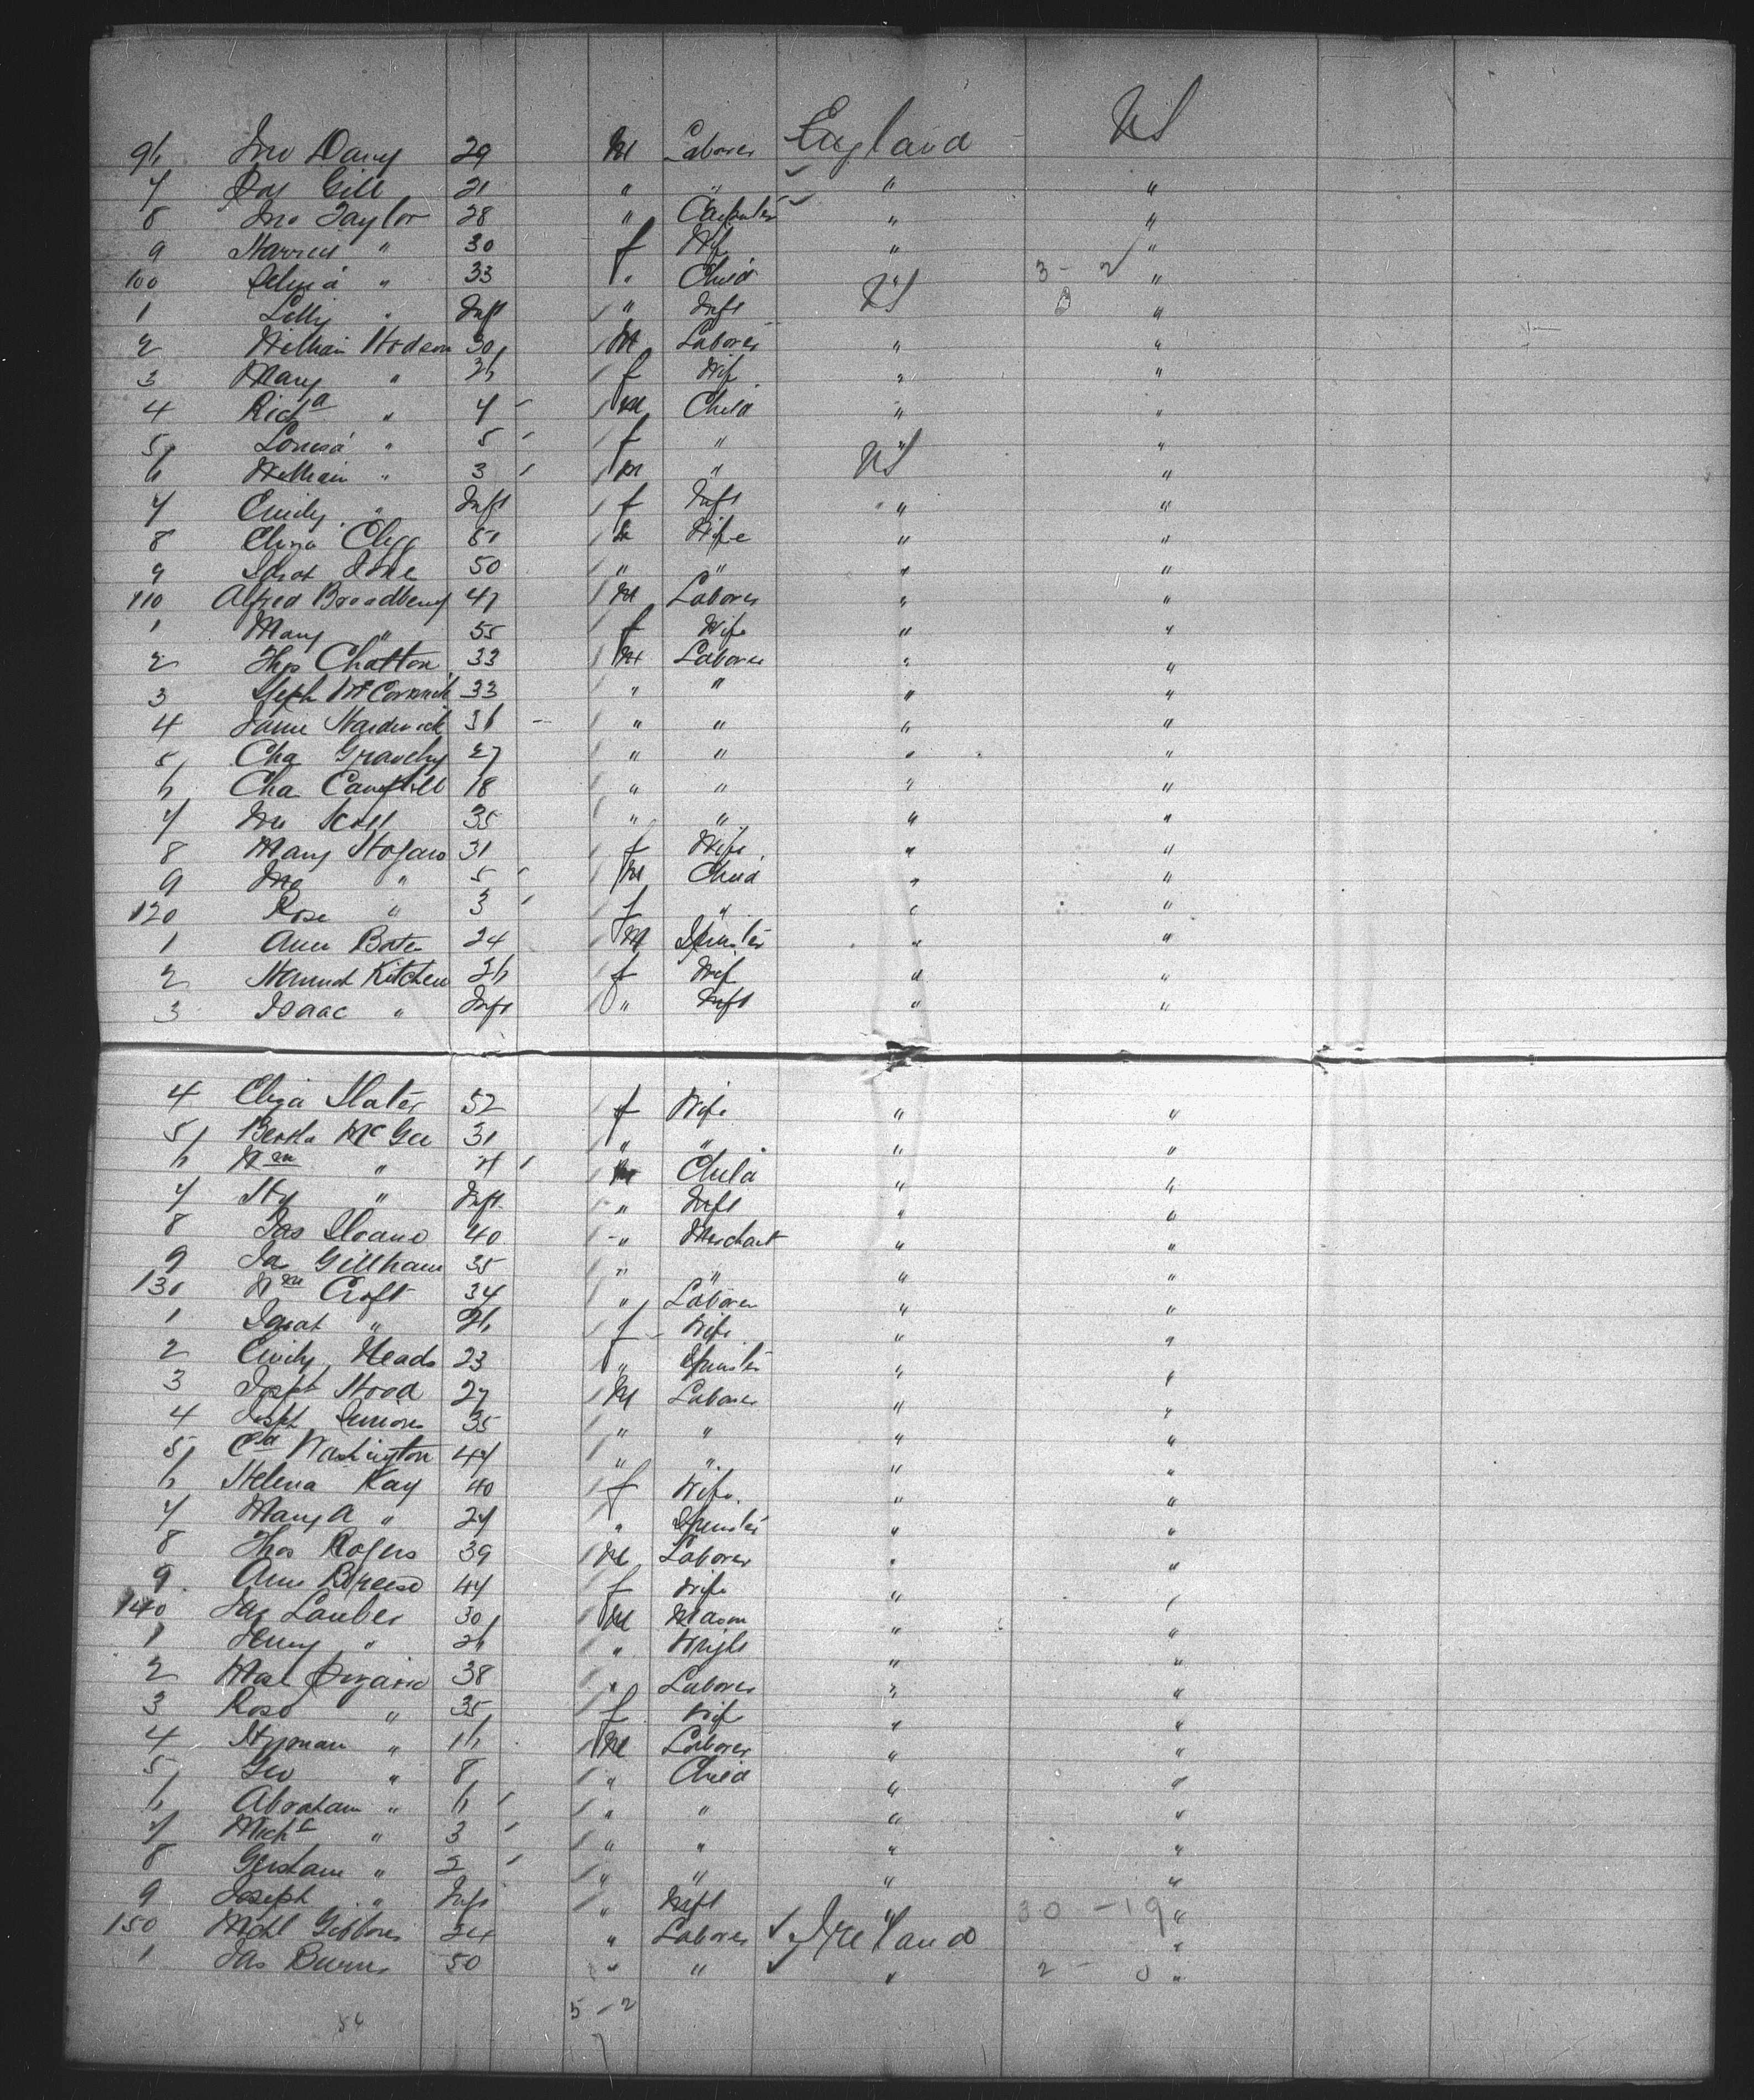 96 Jno Davy 29 M Laborer England US
7 Gill 21 " " " "
8 Jno Taylor 28 " Carpenter " "
9 Harriet " 30 f Wife " "
100 " 33 " Child " 3 - 2 "
1 Lilly " Inft " Inft US 0 "
2 William Hodson 30 M Laborer " "
3 Mary " 26 f Wif " "
4 Richd " 7 M Child " "
5 Louisa " 5 f " " "
6 William " 3 M " US "
7 Emily " Inft f Inft " "
8 Eliza Clegg 51 Wife " "
9 Sarah 50 " " " "
110 Alfred Broadbent 47 M Laborer " "
1 Mary " 55 f Wife " "
2 Thos Chatton 33 M Laborer " "
3 Steph McCormick 33 " " " "
4 Hardwick 36 " " " "
5 Cha 27 " " " "
6 Cha Campbell 18 " " " "
7 Jno Scott 35 " " " "
8 Mary 31 f Wife " "
9 Jno " 5 M Child " "
120 Rose " 3 f " " "
1 Ann Bates 24 M Spinster " "
2 Hannah Kitchen 26 f Wif " "
3 Isaac " Inft " Inft " "
4 Eliza Slater 52 f Wife " "
5 Bertha McGee 31 " " " "
6 Wm " 4 M Child " "
7 Hy " Inft " Inft " "
8 Jas 40 " Merchant " "
9 Ja Gillham 35 " " " "
130 Wm Croft 34 " Laborer " "
1 Sarah " 26 f Wife " "
2 Emily Heads 23 " Spinster " "
3 Josph Wood 27 M Laborer " "
4 Josph 35 " " " "
5 Ed Washington 44 " " " "
6 Helena Kay 40 f Wife " "
7 Mary A " 24 " Spinster " "
8 Thos Rogers 39 M Laborer " "
9 Ann Breese 44 f Wife " "
140 Jas 30 M Mason " "
1 Henry " 26 " Wright " "
2 38 " Laborer " "
3 Rose " 35 f Wif " "
4 Hyman " 16 M Laborer " "
5 Geo " 8 " Child " "
6 Abraham " 6 " " " "
7 Michl " 3 " " " "
8 " 2 " " " "
9 Joseph " Inft " Inft " 30 - 19 "
150 Michl Gibbons 24 " Laborer Ireland "
1 Jas Burns 50 " " " 2 - 0 "
5 - 2
7